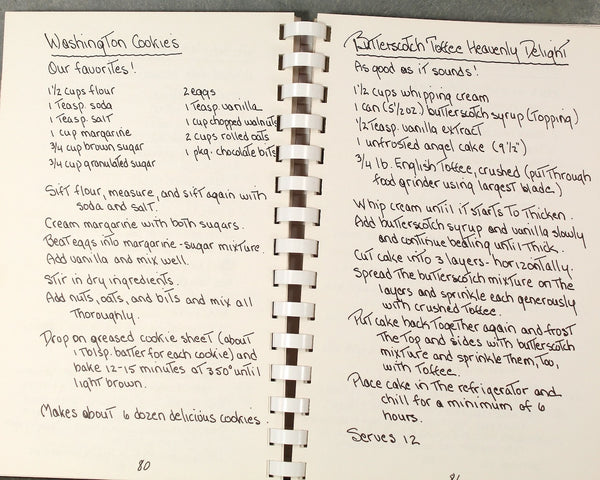 Washington Cookies
Our favorites!
1½ cups flour
1 Teasp. soda
1 Teasp. salt
1 cup margarine
3/4 cup brown sugar
3/4 cup granulated sugar
2 eggs
1 Teasp. vanilla
1 cup chopped walnuts
2 cups rolled oats
1 pkg. chocolate bits
Sift flour, measure, and sift again with
soda and salt.
Cream margarine with both sugars.
Beat eggs into margarine-sugar mixture.
Add vanilla and mix well.
Stir in dry ingredients.
Add nuts, oats, and bits and mix all
Thoroughly.
Drop on greased cookie sheet (about
1 Tblsp. batter for each cookie) and
bake 12-15 minutes at 350° until
light brown.
Makes about 6 dozen delicious cookies.
80
Butterscotch Toffee Heavenly Delight
As good as it sounds!
1½ cups whipping cream
1 can (5½ oz.) butterscotch syrup (Topping)
½ Teasp. vanilla extract
1 unfrosted angel cake (9½")
3/4 lb. English Toffee, crushed (put Through
food grinder using largest blade)
Whip cream until it starts To Thicken.
Add butterscotch syrup and vanilla slowly
and continue beating until Thick.
Cut cake into 3 layers - horizontally.
Spread the butterscotch mixture on the
layers and sprinkle each generously
with crushed Toffee.
Put cake back Together again and frost
The Top and sides with butterscotch
mixture and sprinkle Them, Too,
with Toffee.
Place cake in The refrigerator and
chill for a minimum of 6
hours.
Serves 12